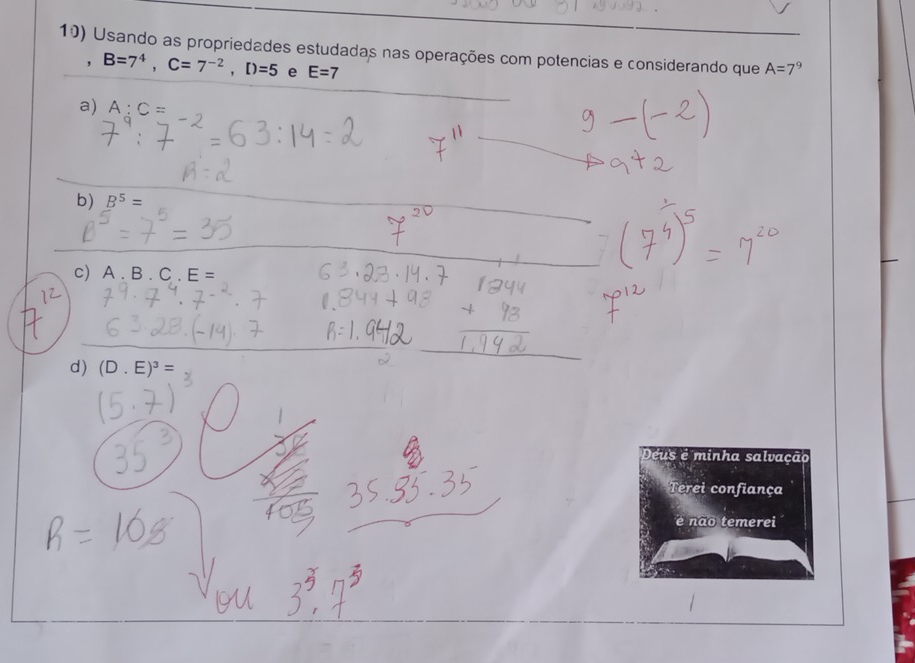 10) Usando as propriedades estudadas nas operações com potencias e considerando que A=7⁹
, B=7⁴ , C= 7⁻² , D=5 e E=7
a) A : C =
7⁹ : 7⁻² = 63:14 = 2
R=2
7¹¹
9 -(-2)
9+2
b) B⁵ =
B⁵ = 7⁵ = 35
7²⁰
(7⁴)⁵ = 7²⁰
c) A . B . C . E =
7⁹. 7⁴. 7⁻². 7
63.28.(-14). 7
7¹²
63.28.14.7
1.844 + 98
R=1.942
1844
+ 98
1.942
7¹²
d) (D . E)³ =
(5.7)³
35³
105
35.35.35
R = 105
ou 3³. 7³
Deus é minha salvação
Terei confiança
e não temerei